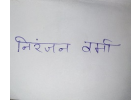 निरंजन वर्मा